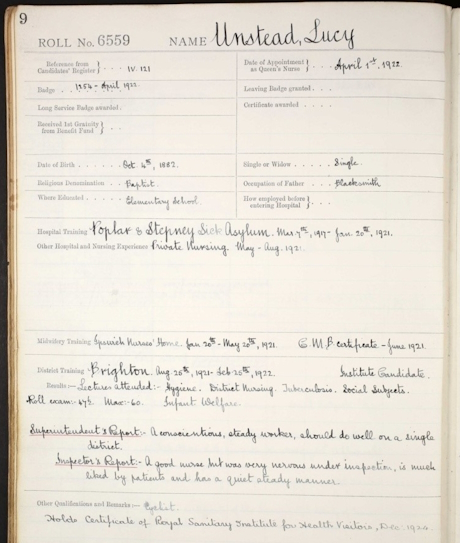 9
ROLL No. 6559 NAME Unstead, Lucy
Reference from Candidates' Register } . . . IV. 121
Date of Appointment as Queen's Nurse } . . . April 1st, 1922
Badge . . 1254 - April 1922.
Leaving Badge granted .
Long Service Badge awarded .
Certificate awarded . . .
Received 1st Gratuity from Benefit Fund } . .
Date of Birth . . . . . . Oct. 4th, 1882.
Single or Widow . . . . Single
Religious Denomination . . Baptist.
Occupation of Father . . . Blacksmith
Where Educated . . . . . Elementary School.
How employed before entering Hospital } . . .
Hospital Training Poplar & Stepney Sick Asylum. Mar. 7th, 1917 - Jan. 20th, 1921.
Other Hospital and Nursing Experience Private Nursing. May - Aug. 1921.
Midwifery Training Ipswich Nurses' Home. Jan 20th - May 20th, 1921. C.M.B certificate - June 1921.
District Training Brighton. Aug. 20th, 1921 - Feb 20th, 1922. Institute Candidate.
Results :— Lectures attended:- Hygiene. District Nursing. Tuberculosis. Social Subjects.
Roll exam:- Max:- 60. Infant Welfare.
Superintendent's Report:- A conscientious, steady worker, should do well on a single
district.
Inspector's Report:- A good nurse but was very nervous under inspection, is much
liked by patients and has a quiet steady manner
Other Qualifications and Remarks :— Cyclist.
Holds Certificate of Royal Sanitary Institute for Health Visitors, Dec: 1924.